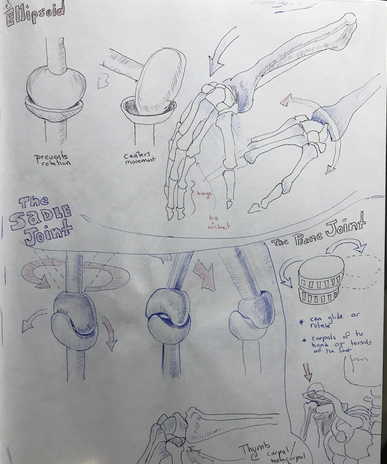 Ellipsoid
prevents
rotation
centers
movement
hinge
The
SADLE
Joint
The Plane Joint
* can glide or
rotate
* carpals of the
hand or tarsals
of the foot
Thumb
carpal/
metacarpal